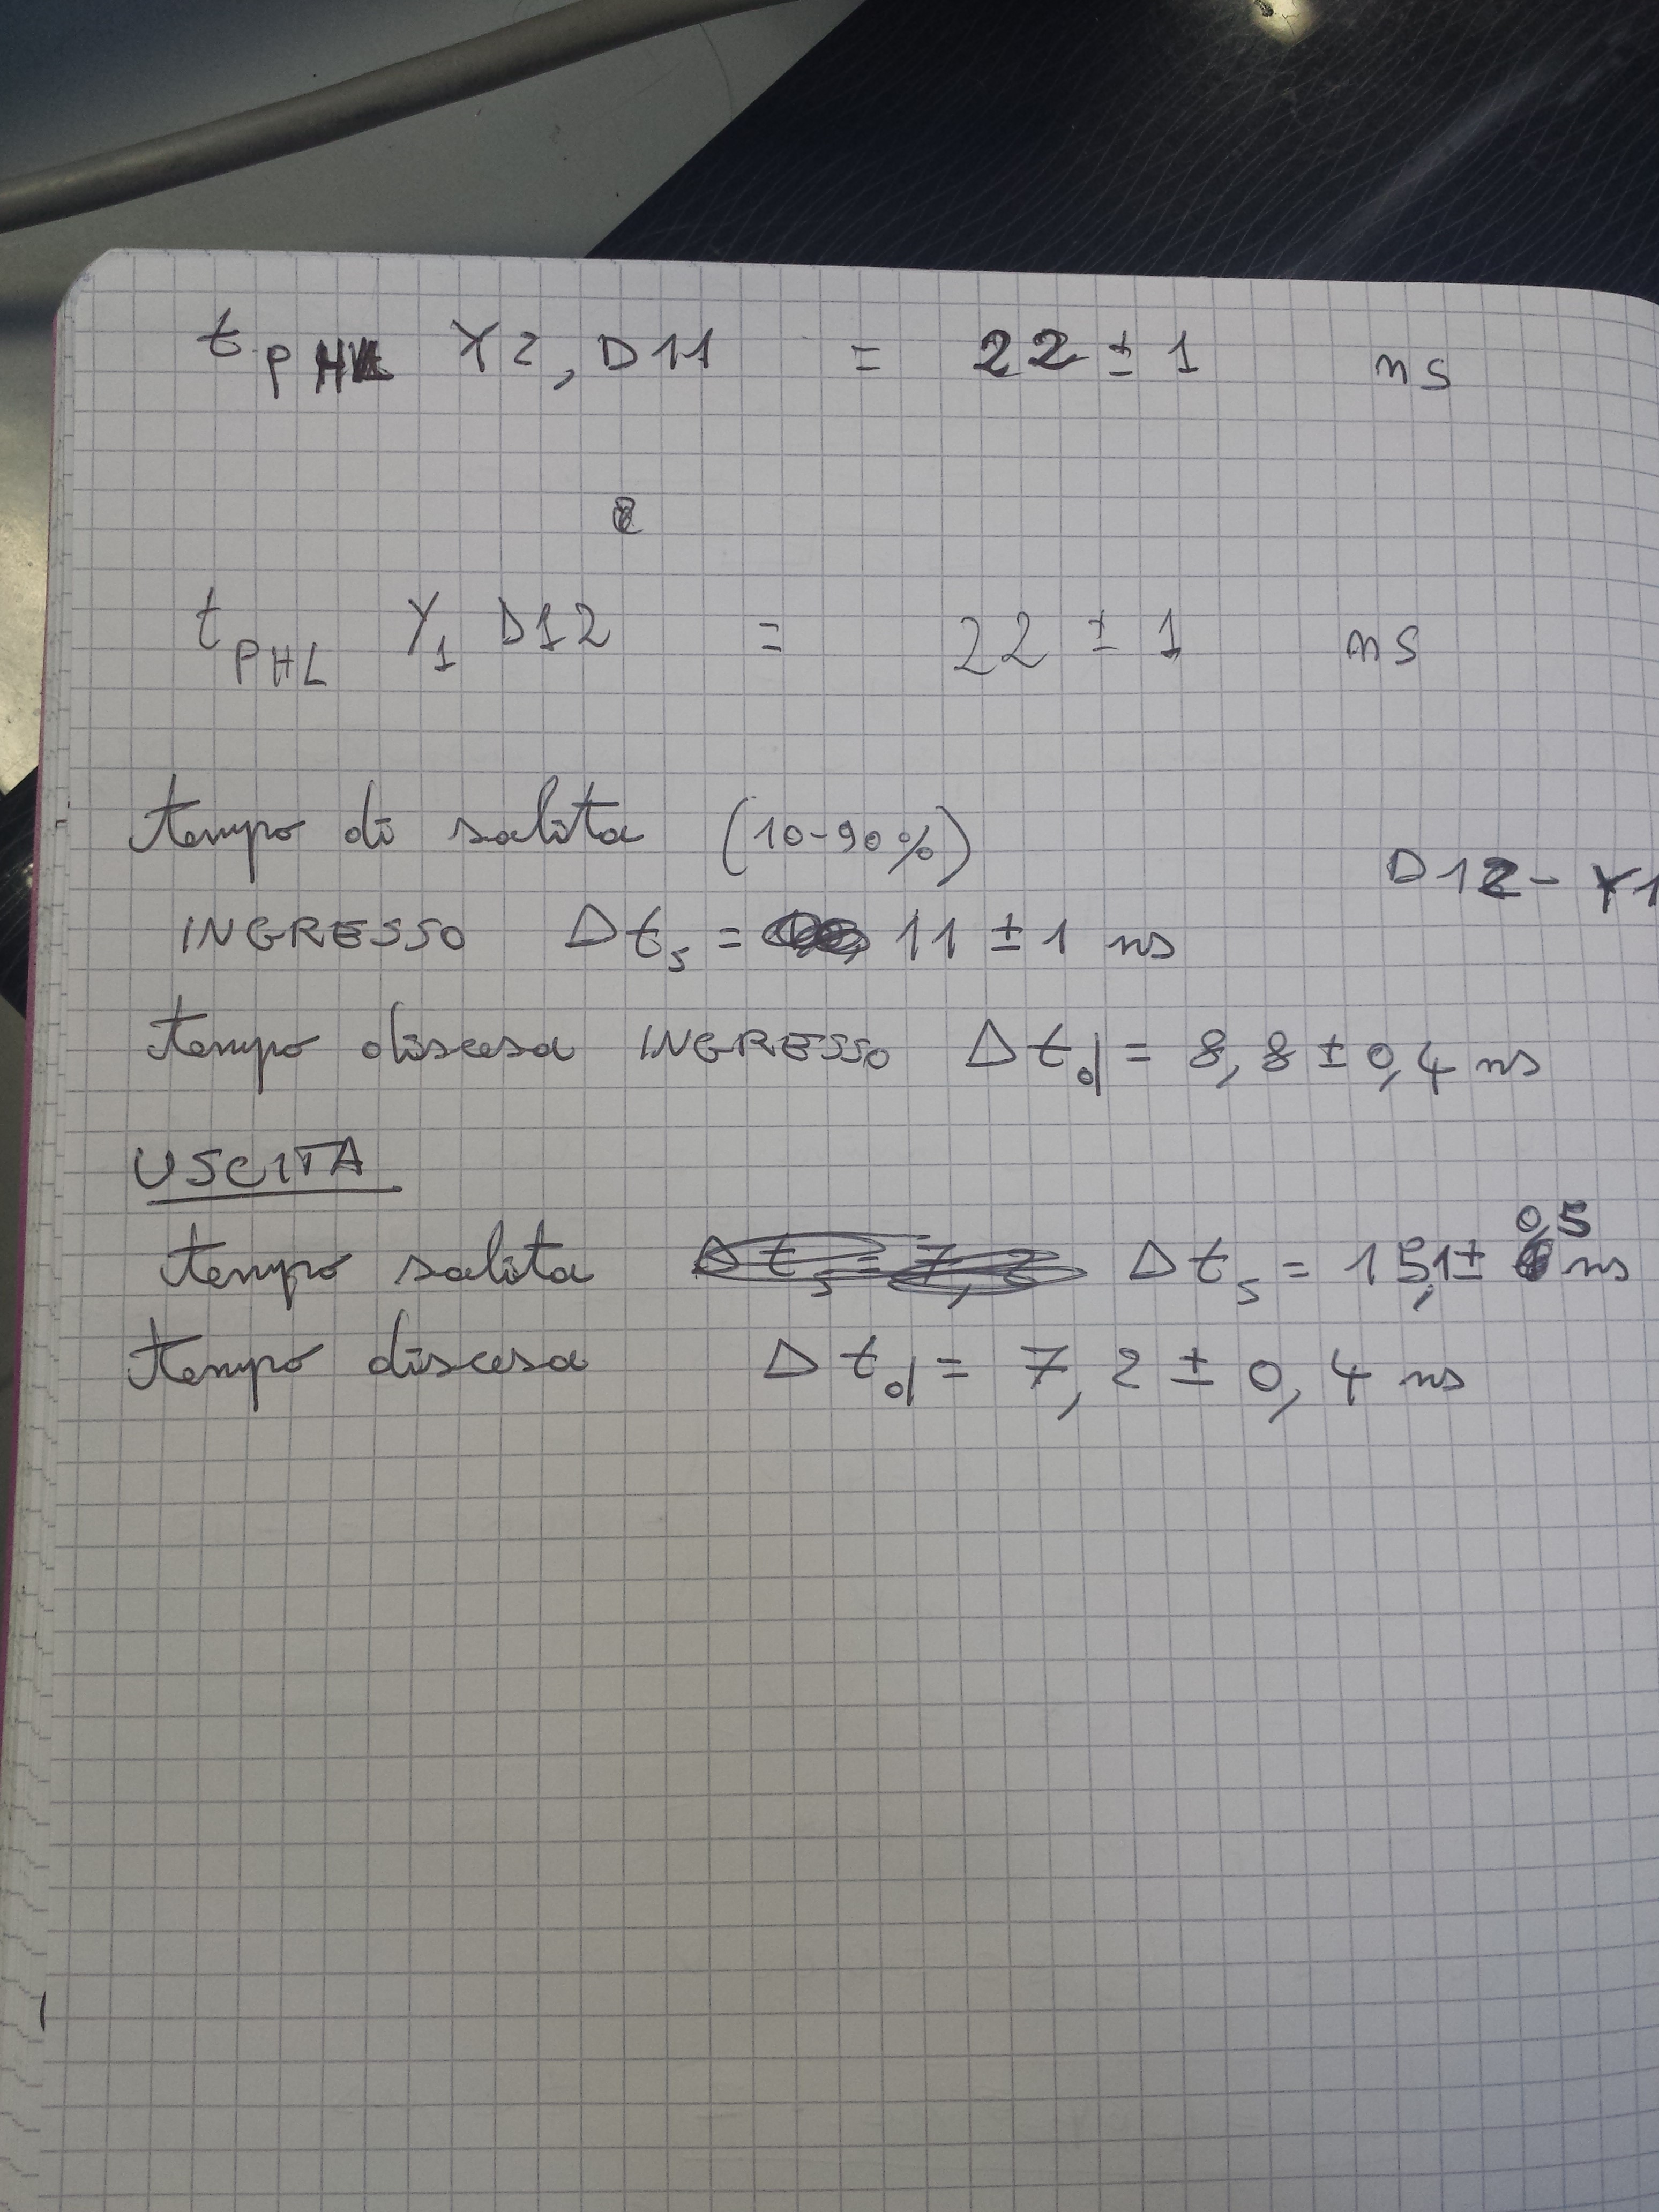 t PHL Y2, D11 = 22 ± 1 ns
t PHL Y1 D12 = 22 ± 1 ns
tempo di salita (10-90%)
D12 - Y1
INGRESSO Δts = 11 ± 1 ns
tempo discesa INGRESSO Δtd = 8,8 ± 0,4 ns
USCITA
tempo salita Δts = 15,1 ± 0,5 ns
tempo discesa Δtd = 7,2 ± 0,4 ns